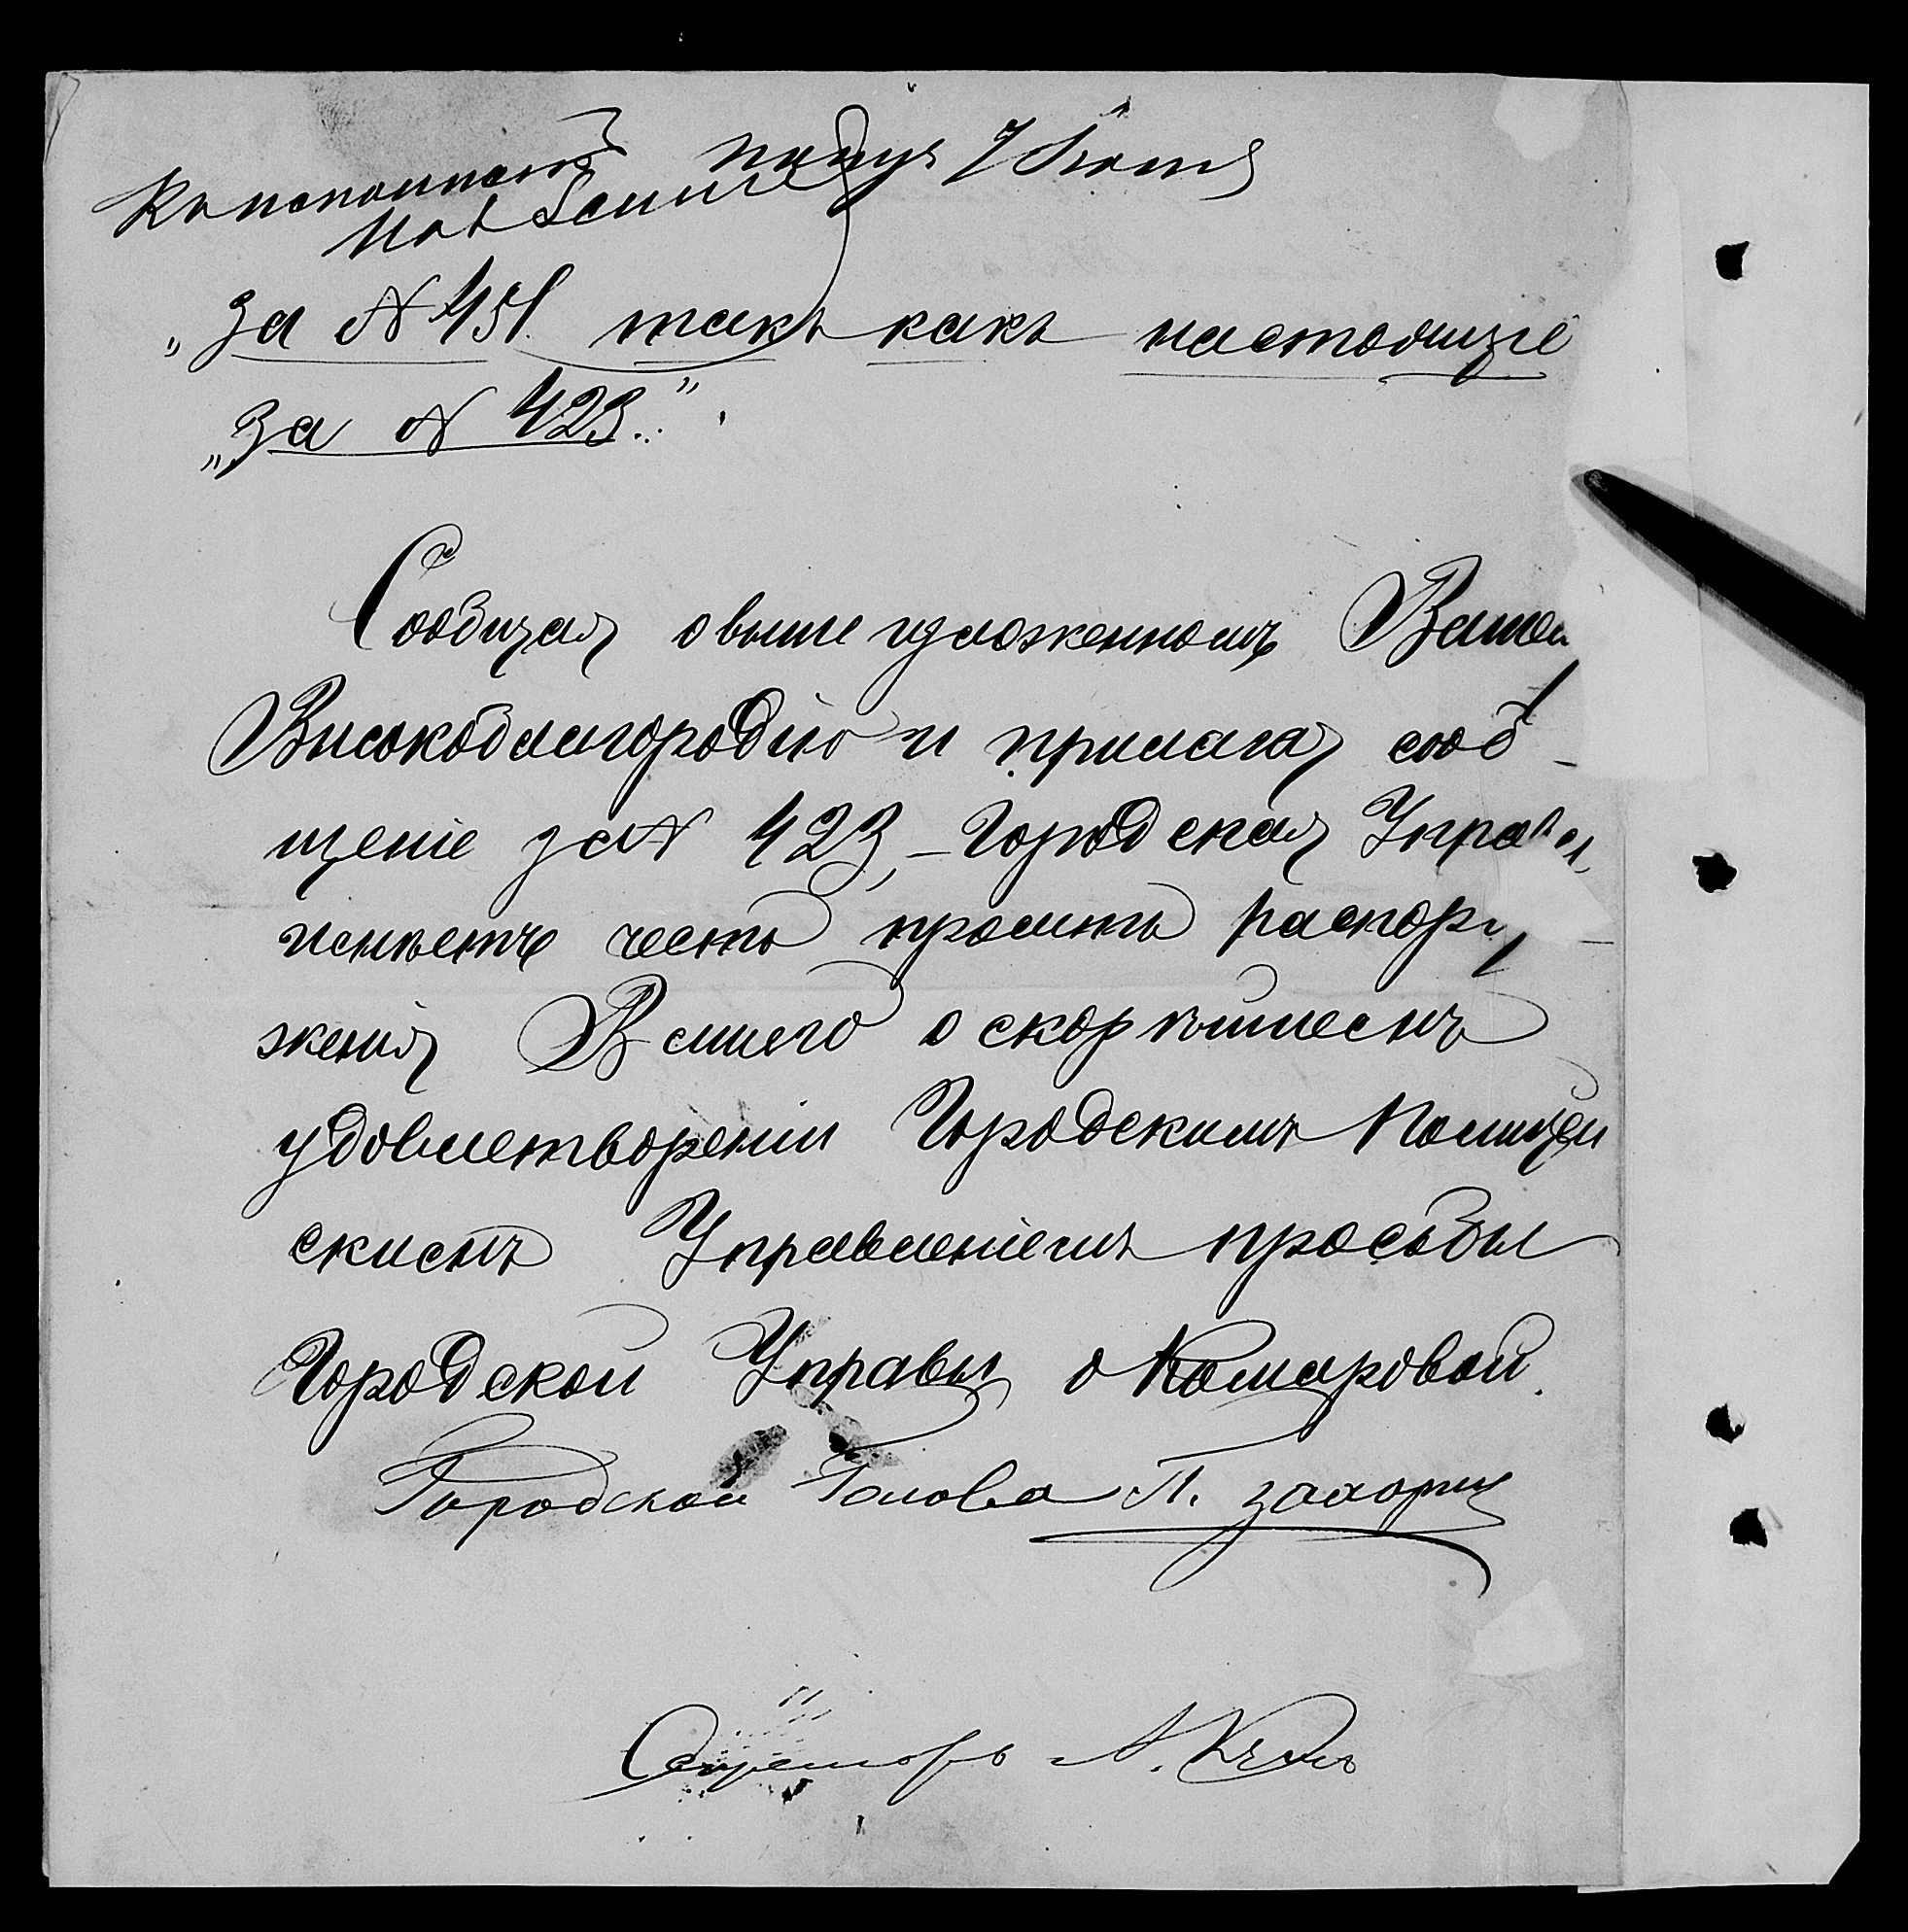 получ 7 Іюня
„за № 451. такъ какъ настоящее
„за № 423.“.
Сообщая о вышеизложенномъ Вашему
Высокоблагородію и прилагая сооб-
щеніе за № 423, – Городская Управа
имѣетъ честь просить распоря-
женія Вашего о скорѣйшемъ
удовлетвореніи Городскимъ Полицей
скимъ Управленіемъ просьбы
Городской Управы о Комаровой.
Городской Голова П.
Секретарь